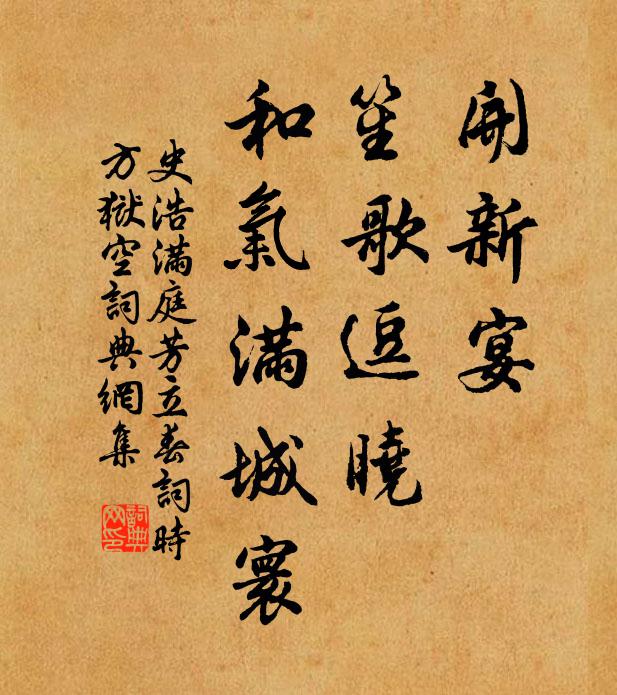 開新宴
笙歌逗曉
和氣滿城寰
史浩滿庭芳立春詞時
方獄空詞典網集
詞典網印